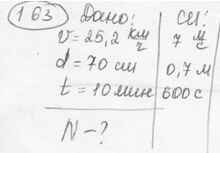 163 Дано: СИ:
v = 25,2 км/ч 7 м/с
d = 70 см 0,7 м
t = 10 мин 600 с
N - ?